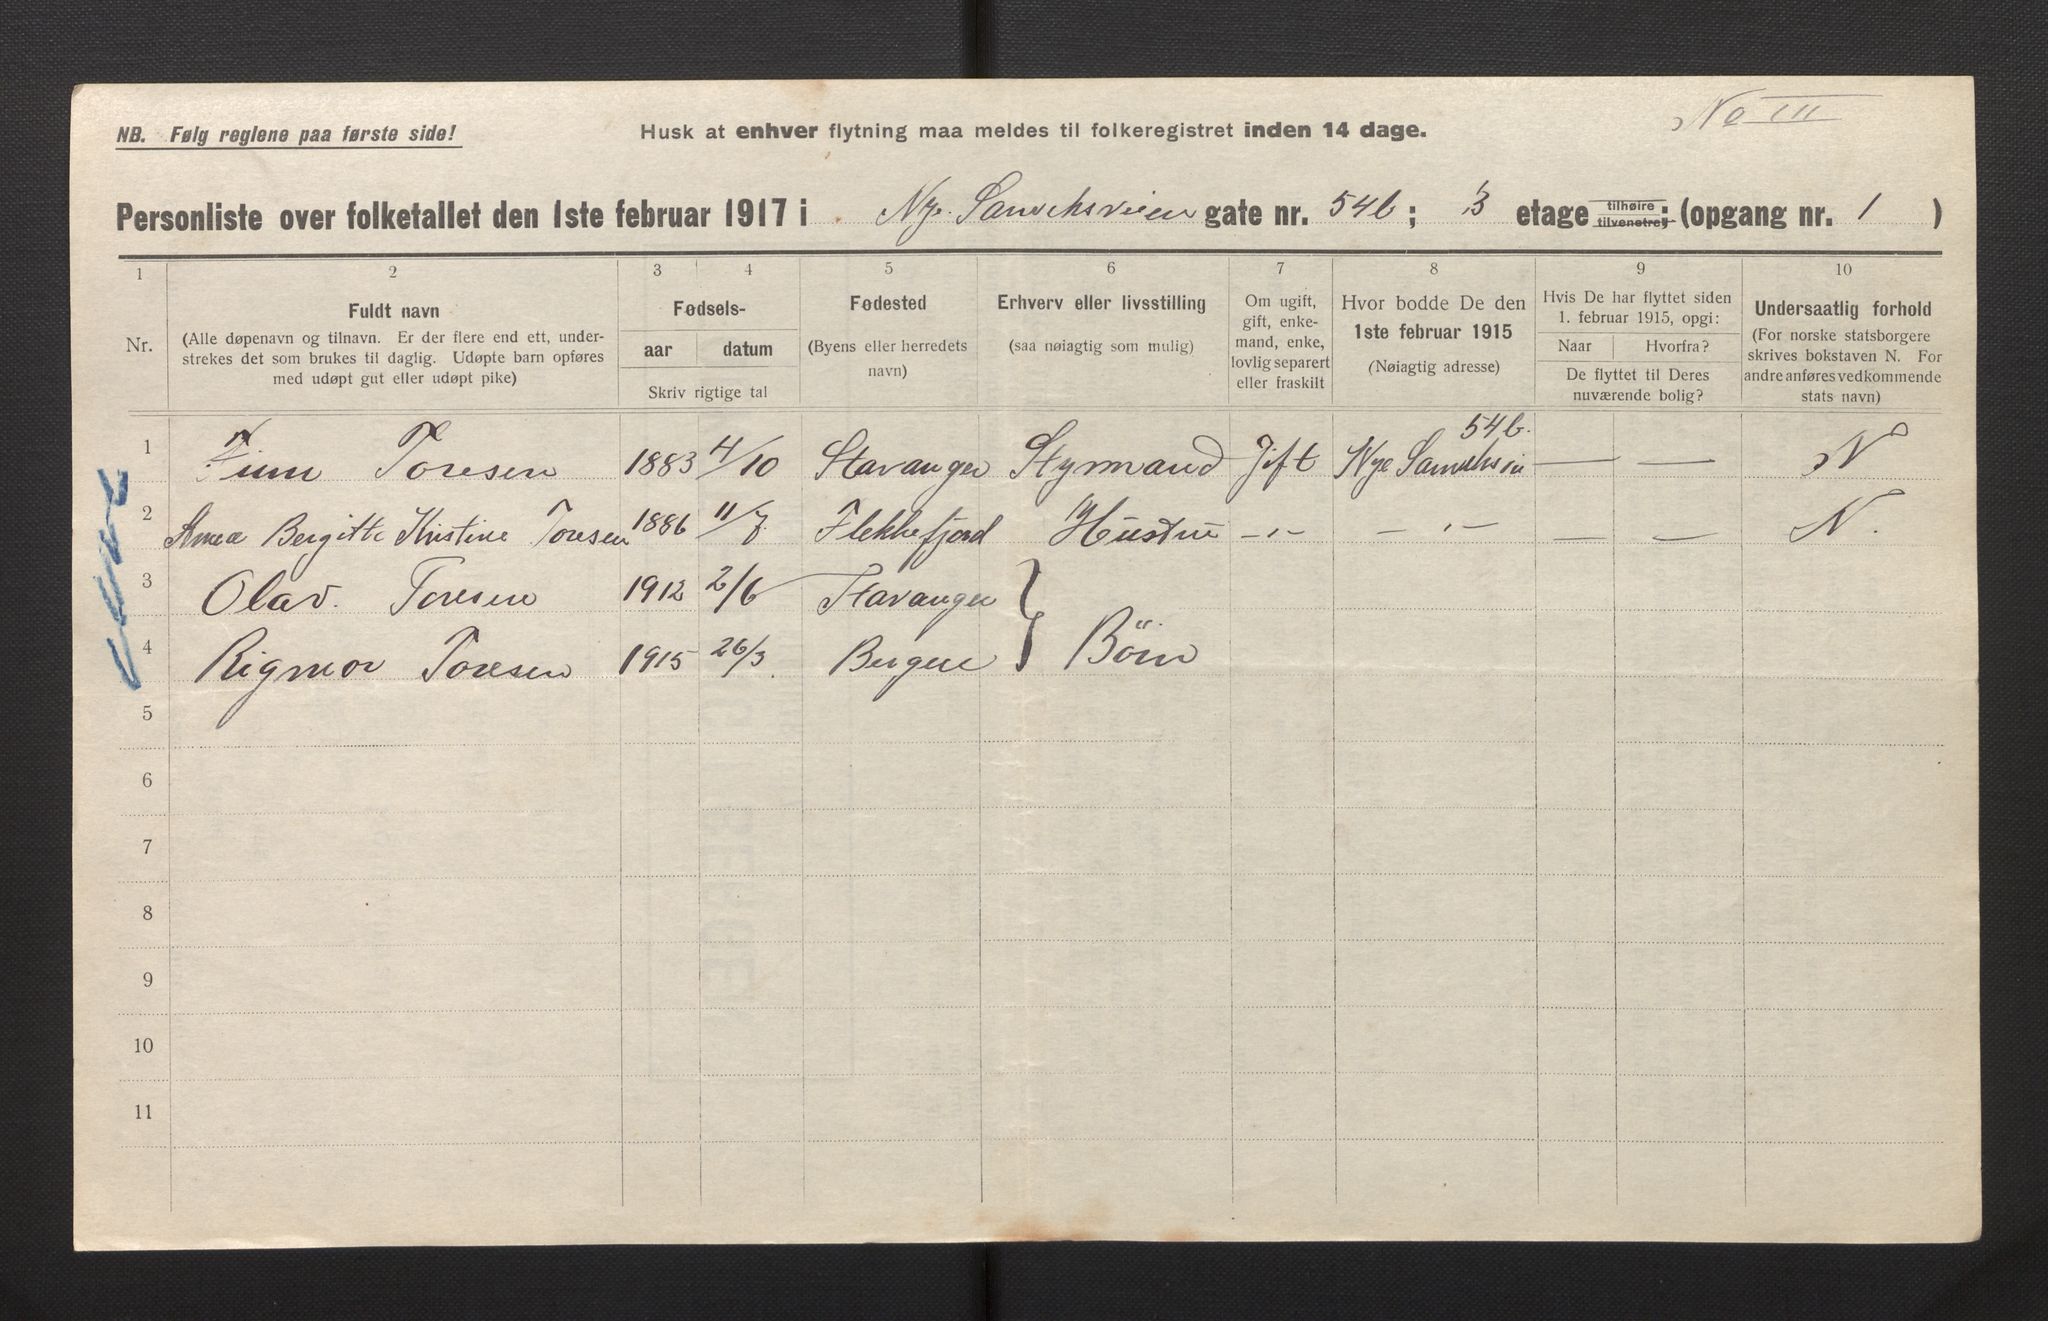 No III
NB. Følg reglene paa første side!
Husk at enhver flytning maa meldes til folkeregistret inden 14 dage.
Personliste over folketallet den 1ste februar 1917 i Nye Sandviksveien gate nr. 54b; 3 etage tilhøire tilvenstre; (opgang nr. 1)
1 2 3 4 5 6 7 8 9 10
Nr.
Fuldt navn
(Alle døpenavn og tilnavn. Er der flere end ett, under-
strekes det som brukes til daglig. Udøpte barn opføres
med udøpt gut eller udøpt pike)
Fødsels-
aar datum
Skriv rigtige tal
Fødested
(Byens eller herredets
navn)
Erhverv eller livsstilling
(saa nøiagtig som mulig)
Om ugift,
gift, enke-
mand, enke,
lovlig separert
eller fraskilt
Hvor bodde De den
1ste februar 1915
(Nøiagtig adresse)
Hvis De har flyttet siden
1. februar 1915, opgi:
Naar Hvorfra?
De flyttet til Deres
nuværende bolig?
Undersaatlig forhold
(For norske statsborgere
skrives bokstaven N. For
andre anføres vedkommende
stats navn)
54b.
1 Toresen 1883 4/10 Stavanger Styrmand Gift Nye Sandviksvei — — N
2 Anna Bergitte Kristine Toresen 1886 11/7 Flekkefjord Hustru -„- - „ - — — N.
3 Olav. Toresen 1912 2/6 Stavanger
4 Rigmor Toresen 1915 26/3. Bergen } Børn
5
6
7
8
9
10
11